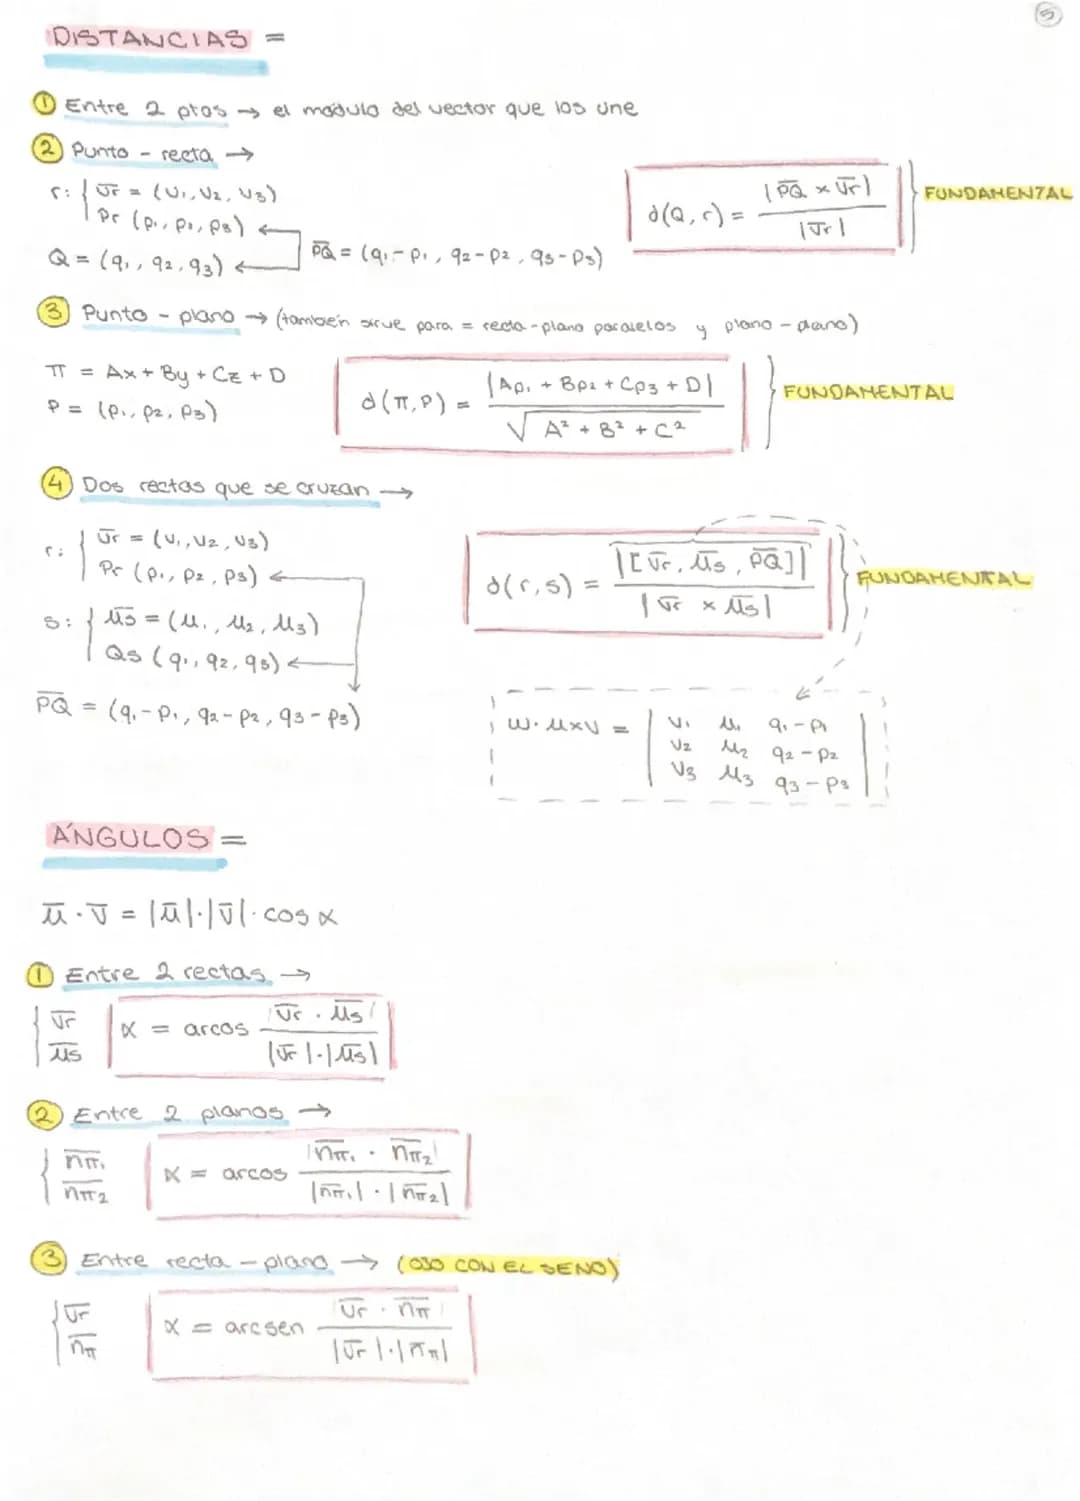 5
DISTANCIAS =
① Entre 2 ptos → el módulo del vector que los une
② Punto - recta →
r: { v̅r = (v₁, v₂, v₃)
Pr (p₁, p₂, p₃)
Q = (q₁, q₂, q₃)
P̅Q̅ = (q₁-p₁, q₂-p₂, q₃-p₃)
d(Q, r) = |P̅Q̅ × v̅r| / |v̅r|
FUNDAMENTAL
③ Punto - plano → (también sirve para = recta-plano paralelos y plano-plano)
π = Ax + By + Cz + D
P = (p₁, p₂, p₃)
d(π, P) = |Ap₁ + Bp₂ + Cp₃ + D| / √A² + B² + C²
FUNDAMENTAL
④ Dos rectas que se cruzan →
r: { v̅r = (v₁, v₂, v₃)
Pr (p₁, p₂, p₃)
s: { u̅s = (u₁, u₂, u₃)
Qs (q₁, q₂, q₃)
P̅Q̅ = (q₁-p₁, q₂-p₂, q₃-p₃)
d(r, s) = |[v̅r, u̅s, P̅Q̅]| / |v̅r × u̅s|
FUNDAMENTAL
w·u×v = | v₁ u₁ q₁-p₁
v₂ u₂ q₂-p₂
v₃ u₃ q₃-p₃ |
ÁNGULOS =
u̅ · v̅ = |u̅|·|v̅|· cos α
① Entre 2 rectas →
{ v̅r
u̅s
α = arcos |v̅r · u̅s| / |v̅r|·|u̅s|
② Entre 2 planos →
{ n̅π₁
n̅π₂
α = arcos |n̅π₁ · n̅π₂| / |n̅π₁| · |n̅π₂|
③ Entre recta - plano → (OJO CON EL SENO)
{ v̅r
n̅π
α = arcsen |v̅r · n̅π| / |v̅r|·|n̅π|